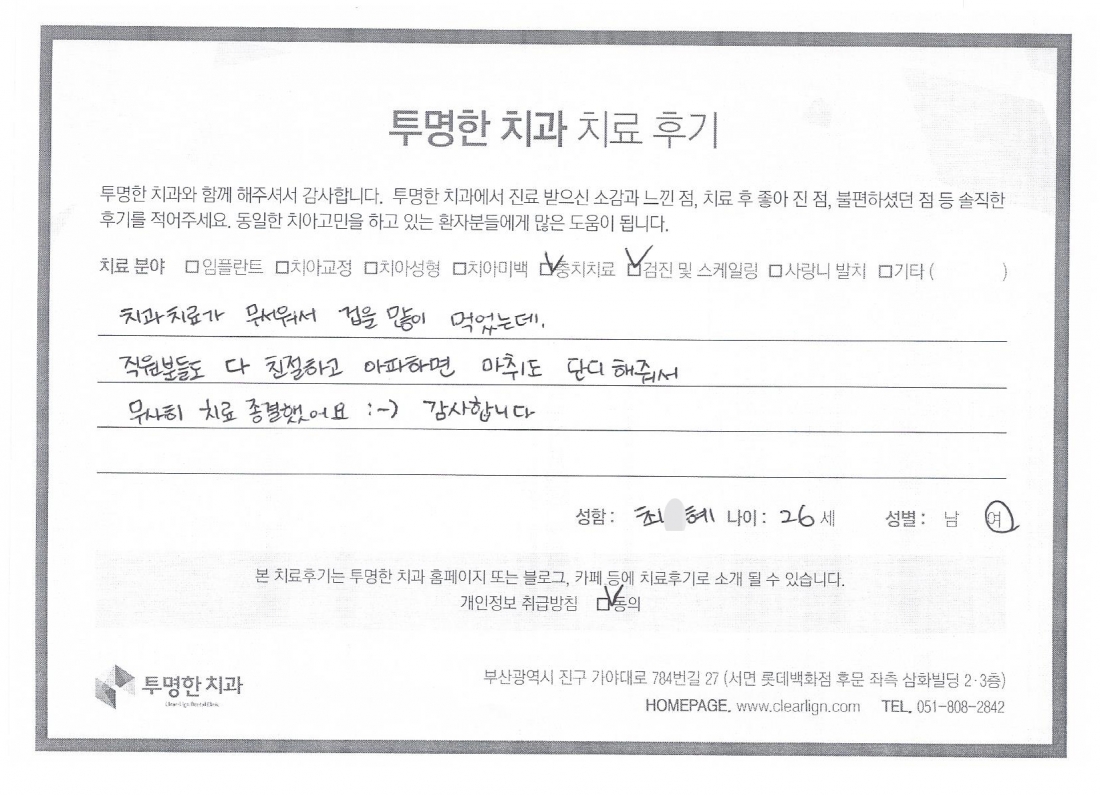 투명한 치과 치료 후기
투명한 치과와 함께 해주셔서 감사합니다. 투명한 치과에서 진료 받으신 소감과 느낀 점, 치료 후 좋아 진 점, 불편하셨던 점 등 솔직한
후기를 적어주세요. 동일한 치아고민을 하고 있는 환자분들에게 많은 도움이 됩니다.
치료 분야 □임플란트 □치아교정 □치아성형 □치아미백 ☑충치치료 ☑검진 및 스케일링 □사랑니 발치 □기타 ( )
치과치료가 무서워서 겁을 많이 먹었는데.
직원분들도 다 친절하고 아파하면 마취도 단디 해줘서
무사히 치료 종결했어요 :-) 감사합니다
성함 : 최 혜 나이 : 26 세 성별 : 남 여
본 치료후기는 투명한 치과 홈페이지 또는 블로그, 카페 등에 치료후기로 소개 될 수 있습니다.
개인정보 취급방침 ☑동의
투명한 치과
ClearAlign Dental Clinic
부산광역시 진구 가야대로 784번길 27 (서면 롯데백화점 후문 좌측 삼화빌딩 2·3층)
HOMEPAGE. www.clearlign.com TEL. 051-808-2842